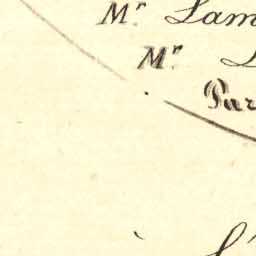 Mr. Lam
Mr.
Par